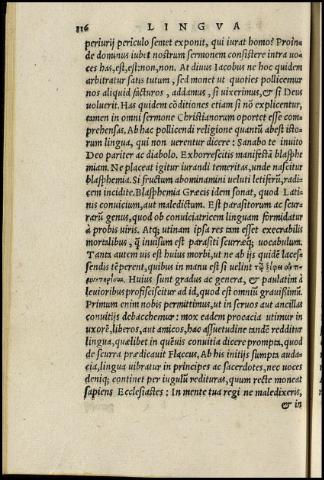 116 LINGVA
periurij periculo semet exponit, qui iurat homo? Proin-
de dominus iubet nostrum sermonem consistere intra uo-
ces has, est, est: non, non. At diuus Iacobus ne hoc quidem
arbitratur satis tutum, sed monet ut quoties pollicemur
nos aliquid facturos, addamus, si uixerimus, & si Deus
uoluerit. Has quidem cõditiones etiam si nõ explicentur,
tamen in omni sermone Christianorum oportet esse com-
prehensas. Ab hac pollicendi religione quantũ abest isto-
rum lingua, qui non uerentur dicere: Sanabo te inuito
Deo pariter ac diabolo. Exhorrescitis manifestã blasphe
miam. Ne placeat igitur iurandi temeritas, unde nascitur
blasphemia. Si fructum abominamini ueluti letiferũ, radi-
cem incidite. Blasphemia Græcis idem sonat, quod Lati-
nis conuicium, aut maledictum. Est parasitorum ac scur-
rarũ genus, quod ob conuiciatricem linguam formidatur
à probis uiris. Atq; utinam ipsa res tam esset execrabilis
mortalibus, q̃ inuisum est parasiti scurræq; uocabulum.
Tanta autem uis est huius morbi, ut ne ab ijs quidẽ laces-
sendis tẽperent, quibus in manu est si uelint
Huius sunt gradus ac genera, & paulatim à
leuioribus proficiscitur ad id, quod est omniũ grauissimũ.
Primum enim nobis permittimus, ut in seruos aut ancillas
conuitijs debacchemur: mox eadem procacia utimur in
uxorẽ, liberos, aut amicos, hac assuetudine tandẽ redditur
lingua, quælibet in quẽuis conuitia dicere prompta, quod
de scurra prædicauit Flaccus. Ab his initijs sumpta auda-
cia, lingua uibratur in principes ac sacerdotes, nec uoces
deniq; continet per iugulũ redituras, quum recte moneat
sapiens Ecclesiastes: In mente tua regi ne maledixeris,
& in